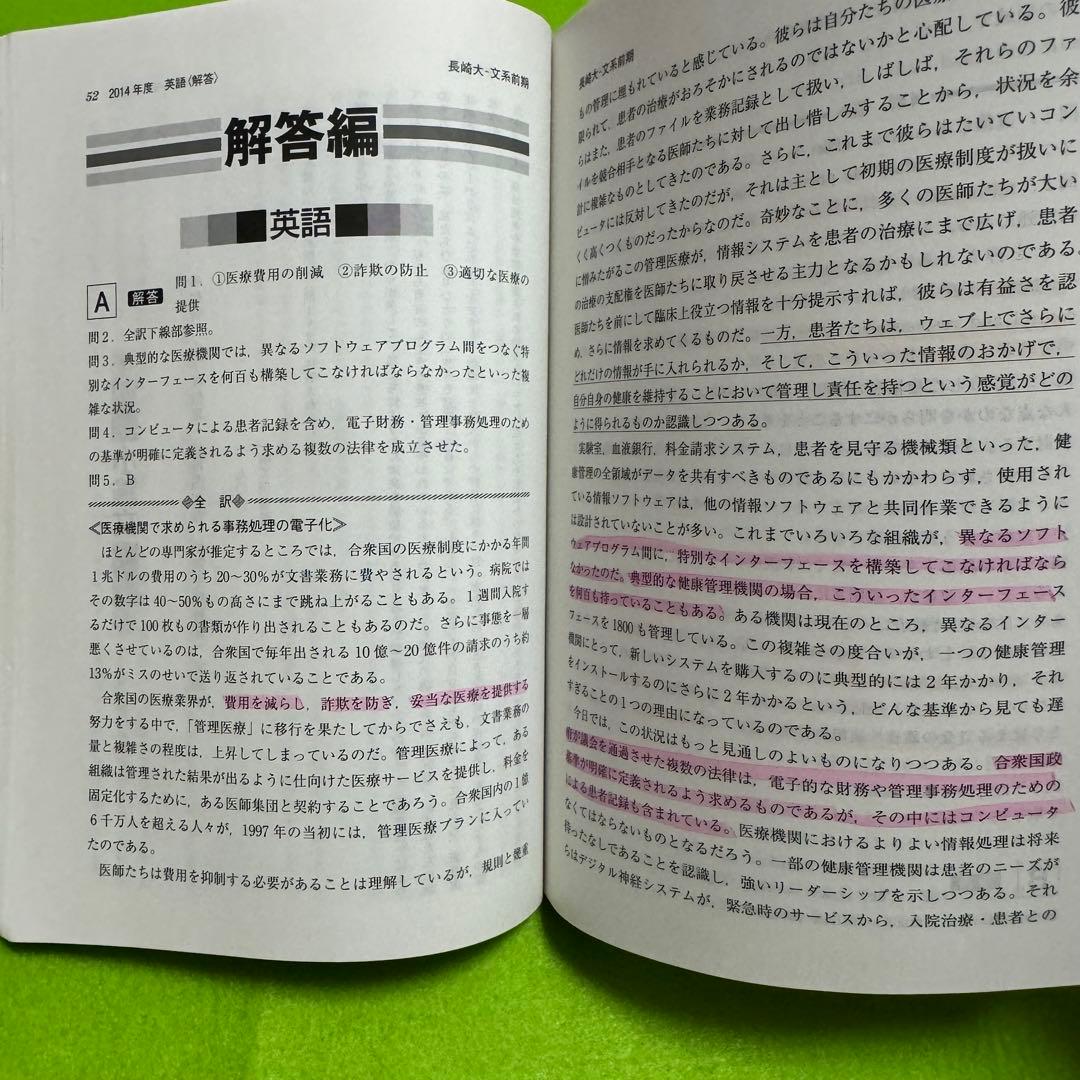 52 2014年度 英語〈解答〉
長崎大-文系前期
解答編
英語
A 解答 問1．①医療費用の削減 ②詐欺の防止 ③適切な医療の
提供
問2．全訳下線部参照。
問3．典型的な医療機関では，異なるソフトウェアプログラム間をつなぐ特
別なインターフェースを何百も構築してこなければならなかったといった複
雑な状況。
問4．コンピュータによる患者記録を含め，電子財務・管理事務処理のため
の基準が明確に定義されるよう求める複数の法律を成立させた。
問5．B
全訳
≪医療機関で求められる事務処理の電子化≫
ほとんどの専門家が推定するところでは，合衆国の医療制度にかかる年間
1兆ドルの費用のうち20～30％が文書業務に費やされるという。病院では
その数字は40～50％もの高さにまで跳ね上がることもある。1週間入院す
るだけで100枚もの書類が作り出されることもあるのだ。さらに事態を一層
悪くさせているのは，合衆国で毎年出される10億～20億件の請求のうち約
13％がミスのせいで送り返されていることである。
合衆国の医療業界が，費用を減らし，詐欺を防ぎ，妥当な医療を提供する
努力をする中で，「管理医療」に移行を果たしてからでさえも，文書業務の
量と複雑さの程度は，上昇してしまっているのだ。管理医療によって，ある
組織は管理された結果が出るように仕向けた医療サービスを提供し，料金を
固定化するために，ある医師集団と契約することであろう。合衆国内の1億
6千万人を超える人々が，1997年の当初には，管理医療プランに入ってい
たのである。
医師たちは費用を抑制する必要があることは理解しているが，規則と幾重
長崎大-文系前期
もの管理に埋もれていると感じている。彼らは自分たちの医療
限られて，患者の治療がおろそかにされるのではないかと心配している。彼
らはまた，患者のファイルを業務記録として扱い，しばしば，それらのファ
イルを競合相手となる医師たちに対して出し惜しみすることから，状況を余
計に複雑なものとしてきたのである。さらに，これまで彼らはたいていコン
ピュータには反対してきたのだが，それは主として初期の医療制度が扱いに
くく高くつくものだったからなのだ。奇妙なことに，多くの医師たちが大い
に憎みたがるこの管理医療が，情報システムを患者の治療にまで広げ，患者
の治療の支配権を医師たちに取り戻させる主力となるかもしれないのである。
医師たちを前にして臨床上役立つ情報を十分提示すれば，彼らは有益さを認
め，さらに情報を求めてくるものだ。一方，患者たちは，ウェブ上でさらに
どれだけの情報が手に入れられるか，そして，こういった情報のおかげで，
自分自身の健康を維持することにおいて管理し責任を持つという感覚がどの
ように得られるものか認識しつつある。
実験室，血液銀行，料金請求システム，患者を見守る機械類といった，健
康管理の全領域がデータを共有すべきものであるにもかかわらず，使用され
ている情報ソフトウェアは，他の情報ソフトウェアと共同作業できるように
は設計されていないことが多い。これまでいろいろな組織が，異なるソフト
ウェアプログラム間に，特別なインターフェースを構築してこなければなら
なかったのだ。典型的な健康管理機関の場合，こういったインターフェース
を何百も持っていることもある。ある機関は現在のところ，異なるインター
フェースを1800も管理している。この複雑さの度合いが，一つの健康管理
機関にとって，新しいシステムを購入するのに典型的には2年かかり，それ
をインストールするのにさらに2年かかるという，どんな基準から見ても遅
すぎることの1つの理由になっているのである。
今日では，この状況はもっと見通しのよいものになりつつある。合衆国政
府が議会を通過させた複数の法律は，電子的な財務や管理事務処理のための
基準が明確に定義されるよう求めるものであるが，その中にはコンピュータ
による患者記録も含まれている。医療機関におけるよりよい情報処理は将来
なくてはならないものとなるだろう。一部の健康管理機関は患者のニーズが
待ったなしであることを認識し，強いリーダーシップを示しつつある。それ
らはデジタル神経システムが，緊急時のサービスから，入院治療・患者との